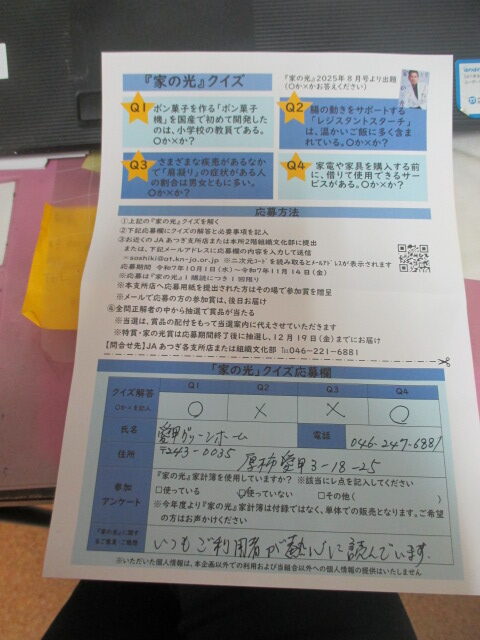 『家の光』クイズ
『家の光』2025年8月号より出題
(〇か×かお答えください)
Q1 ポン菓子を作る「ポン菓子
機」を国産で初めて開発した
のは、小学校の教員である。
〇か×か?
Q2 腸の動きをサポートする
「レジスタントスターチ」
は、温かいご飯に多く含ま
れている。〇か×か?
Q3 さまざまな疾患があるなか
で「肩凝り」の症状がある人
の割合は男女ともに多い。
〇か×か?
Q4 家電や家具を購入する前
に、借りて使用できるサー
ビスがある。〇か×か?
応募方法
①上記の『家の光』クイズを解く
②下記応募欄にクイズの解答と必要事項を記入
③お近くのJAあつぎ各支所店または本所2階組織文化部に提出
または、下記メールアドレスに応募欄の内容を入力し送信
soshiki@at.kn-jo.or.jp ※二次元コードを読み取るとメールアドレスが表示されます
応募期間 令和7年10月1日(水)~令和7年11月14日(金)
※応募は『家の光』1購読につき1回限り
※本支所店へ応募用紙を提出された方はその場で参加賞を贈呈
※メールで応募の方の参加賞は、後日お届け
④全問正解者の中から抽選で賞品が当たる
※当選は、賞品の配付をもって当選案内に代えさせていただきます
※特賞・家の光賞は応募期間終了後に抽選し、12月19日(金)までにお届け
【問合せ先】JAあつぎ各支所店または組織文化部 ℡046-221-6881
「家の光」クイズ応募欄
クイズ解答
〇か×を記入
Q1 Q2 Q3 Q4
〇 × × 〇
氏名 愛甲グリーンホーム 電話 046-247-6881
住所 〒243-0035
厚木市愛甲3-18-25
参加
アンケート
『家の光』家計簿を使用していますか? ※該当にレ点を記入ください
□使っている ☑使っていない □その他( )
※今年度より『家の光』家計簿は付録ではなく、単体での販売となります。ご希望
の方はお声かけください
『家の光』に関す
るご意見・ご感想
いつもご利用者が 読んでいます。
※いただいた個人情報は、本企画以外での利用および当組合以外への個人情報の提供はいたしません